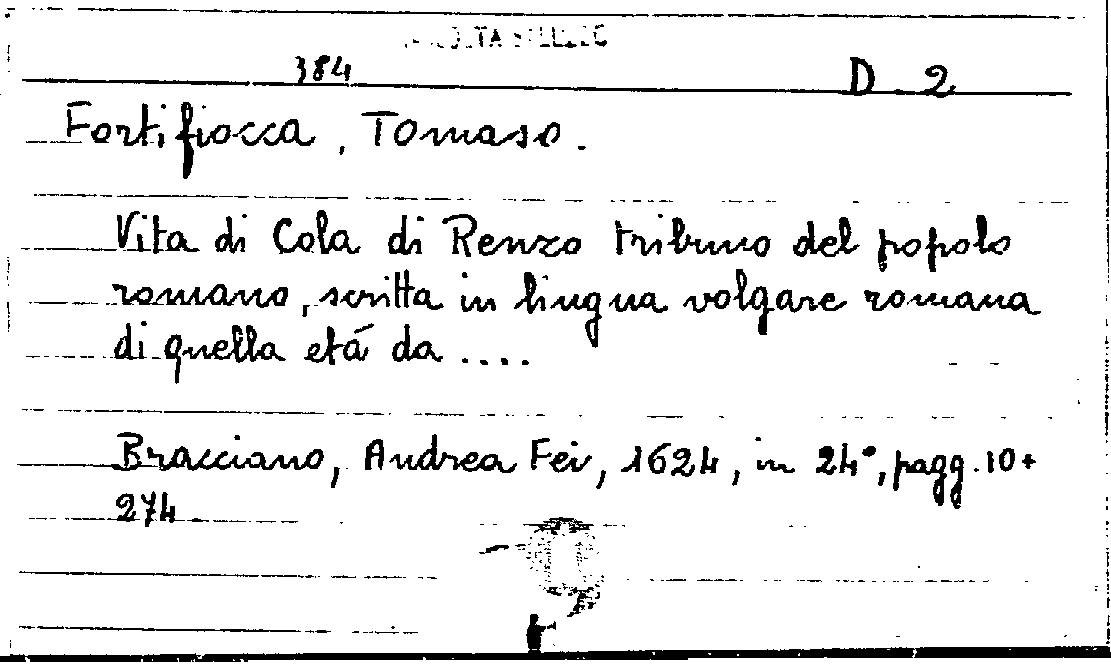 384 D. 2
Fortifiocca, Tomaso.
Vita di Cola di Renzo tribuno del popolo
romano, scritta in lingua volgare romana
di quella etá da ....
Bracciano, Andrea Fei, 1624, in 24°, pagg. 10+
274